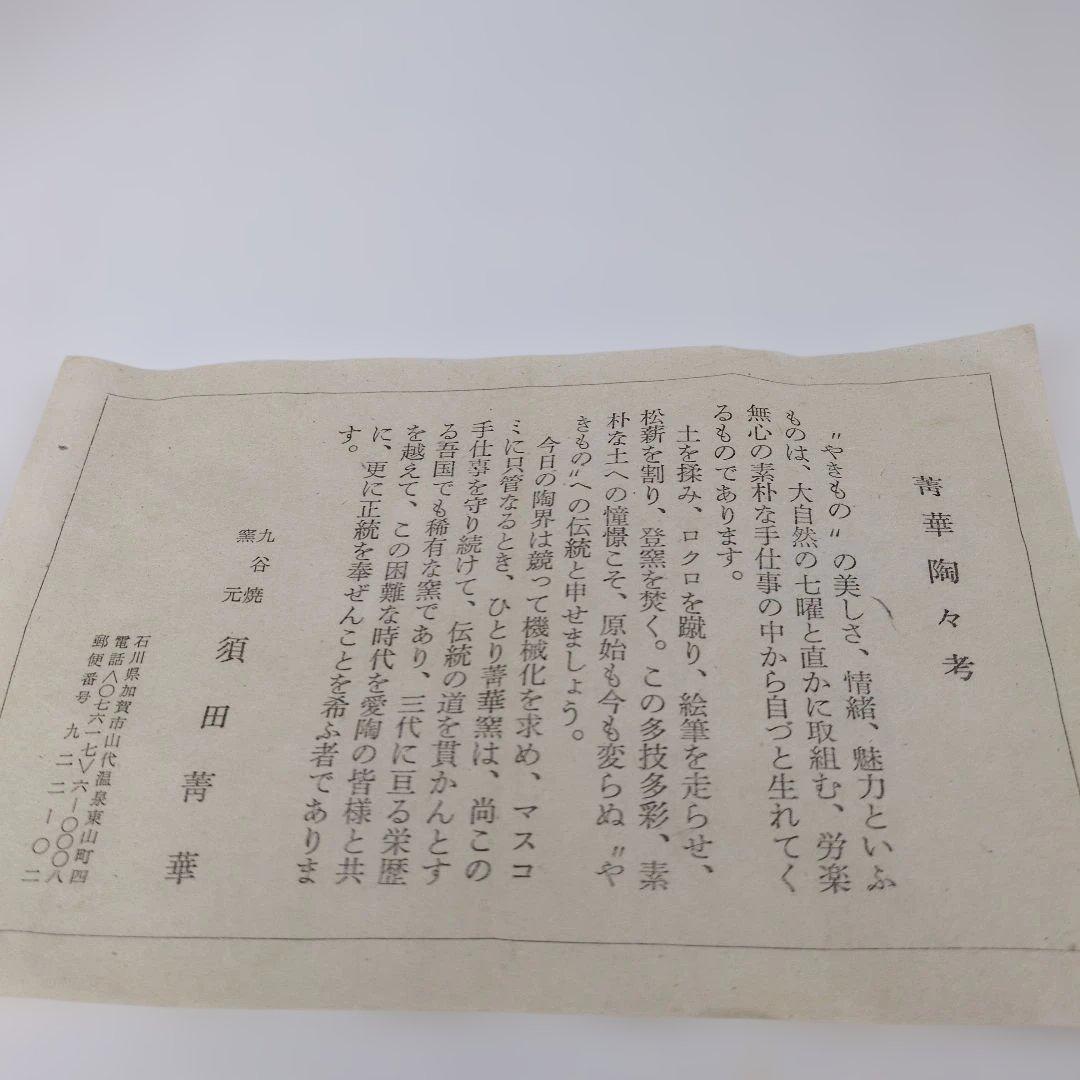 菁華陶々考
〃やきもの〃の美しさ、情緒、魅力といふ
ものは、大自然の七曜と直かに取組む、労楽
無心の素朴な手仕事の中から自づと生れてく
るものであります。
土を揉み、ロクロを蹴り、絵筆を走らせ、
松薪を割り、登窯を焚く。この多技多彩、素
朴な土への憧憬こそ、原始も今も変らぬ〃や
きもの〃への伝統と申せましょう。
今日の陶界は競って機械化を求め、マスコ
ミに只管なるとき、ひとり菁華窯は、尚この
手仕事を守り続けて、伝統の道を貫かんとす
る吾国でも稀有な窯であり、三代に亘る栄歴
を越えて、この困難な時代を愛陶の皆様と共
に、更に正統を奉ぜんことを希ふ者でありま
す。
九谷焼
窯元
須田菁華
石川県加賀市山代温泉東山町四
電話〈〇七六一七〉六―〇〇〇八
郵便番号 九二二―〇二